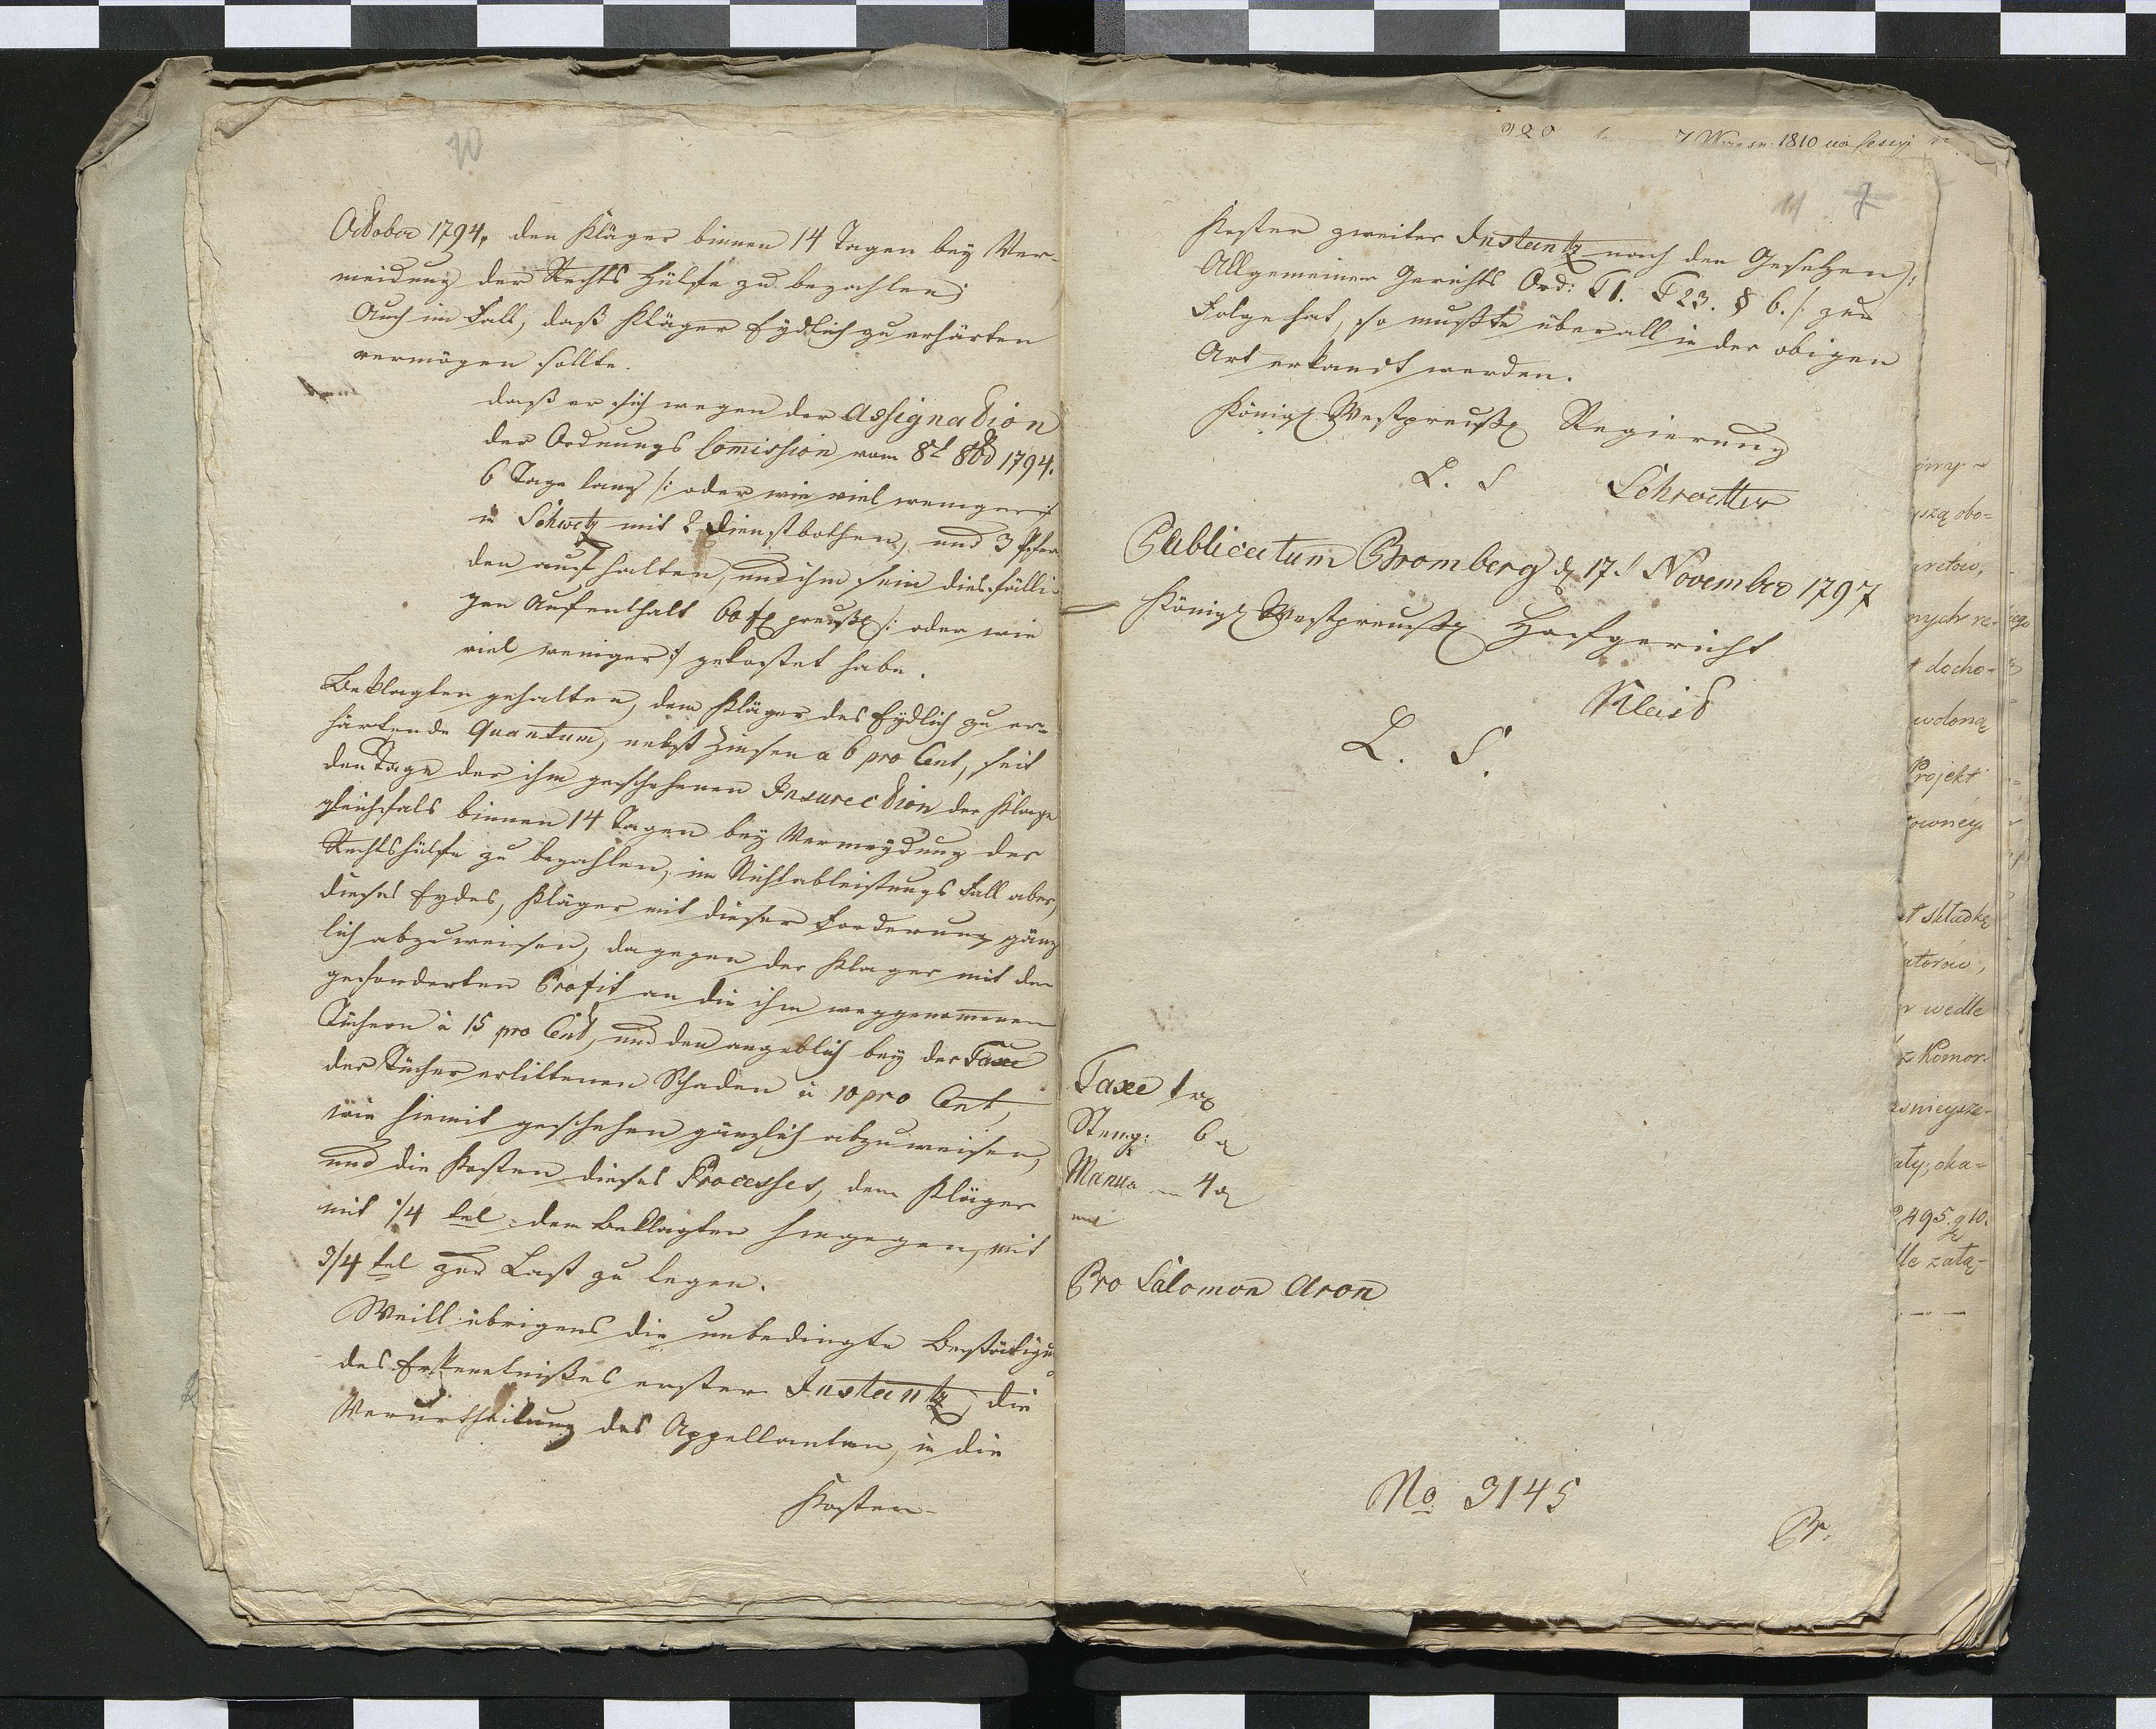 October 1794, den Kläger binnen 14 Tagen bey Ver-
meidung der Rechts Hülfe zu bezahlen;
Auch im Fall, daß Kläger Eydlich zu erhärten
vermögen sollte.
daß er sich wegen der Assignation
der Ordnungs Comission vom 8t 8br 1794.
6 Tage lang /: oder wie viel weniger :/
in Schwetz mit 2 Dienstbothen, und 3 Pfer-
den aufhalten, und ihm sein diesfälli-
gen Aufenthalt 60 f preuß /: oder wie
viel weniger :/ gekostet habe.
Beklagten gehalten, dem Kläger des Eydlich zu er-
härtende Quantum, nebst Zinsen a 6 pro Cent, seit
den Tage der ihm geschehenen Insurection der Klage
gleichfals binnen 14 Tagen bey Vermeydung der
Rechtshülfe zu bezahlen, im Nichtableistungs Fall aber,
dieses Eydes, Kläger mit dieser Forderung gänz
lich abzuweisen, dagegen der Klager mit den
geforderten Profit an die ihm weggenommenen
Tüchern à 15 pro Cent, und den angeblich bey der Taxe
der Tücher erlittenen Schaden à 10 pro Cent,
wie hiemit geschehen gänzlich abzuweisen,
und die Kosten dieses Processes, dem Kläger
mit 1/4 tel dem Beklagten hingegen, mit
3/4 tel zur Last zu legen.
Weill übrigens die unbedingte Bestätigu
des Erkenntnißes erster Instantz, die
Verurtheilung des Appellanten, in die
Kosten
7 1810 na sessyi
11
Kosten zweiter Instantz nach den Gesetzen /:
Allgemeiner Gerichts Ord: T 1. T 23. § 6. :/ zur
Folge hat, so mußte überall in der obigen
Art erkandt werden.
Königl Westpreuß Regierung
L. S Schroetter
Publicatum Bromberg d 17t November 1797
Königl Westpreuß Hofgericht
Kleist
L. S.
Taxe 1
Stemp: 6
Manua 4
Pro Salomon Aron
No 3145
Pr.
yszą obo=
aretow,
nych re-
docho=
Projekt
owney
składkę
atorów,
wedle
z Komor-
snieysze-
aty, oka=
495. g 10.